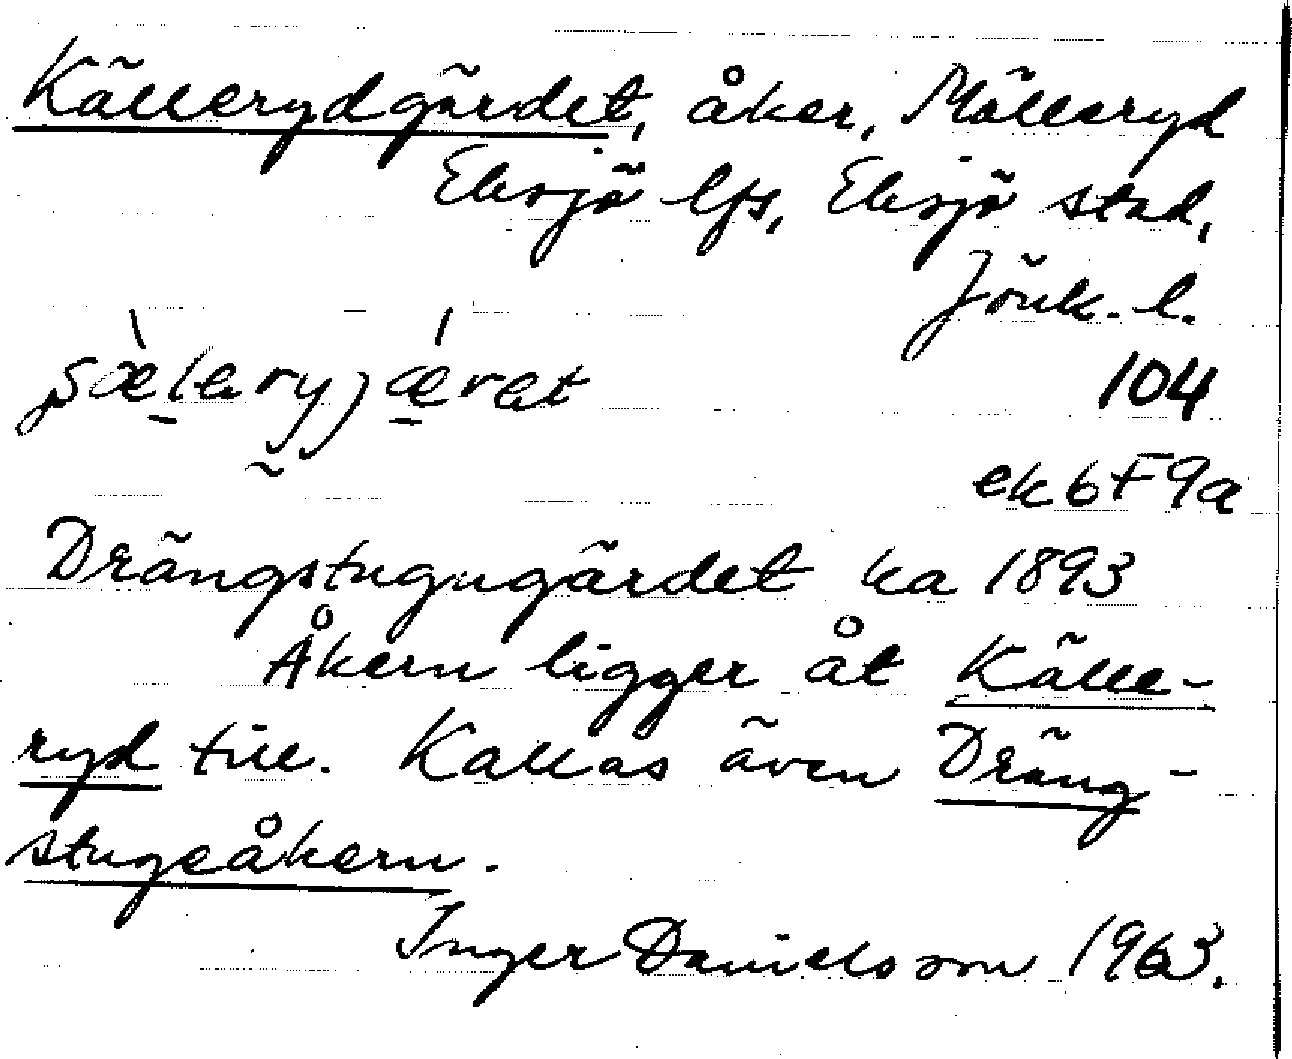 Källerydgärdet, åker, Målleryd
Eksjö lfs, Eksjö stad,
Jönk. l.
104
ek 6F9a
Drängstugugärdet ka 1893
Åkern ligger åt Källe-
ryd till. Kallas även Dräng-
stugeåkern.
Inger Danielsson 1963.